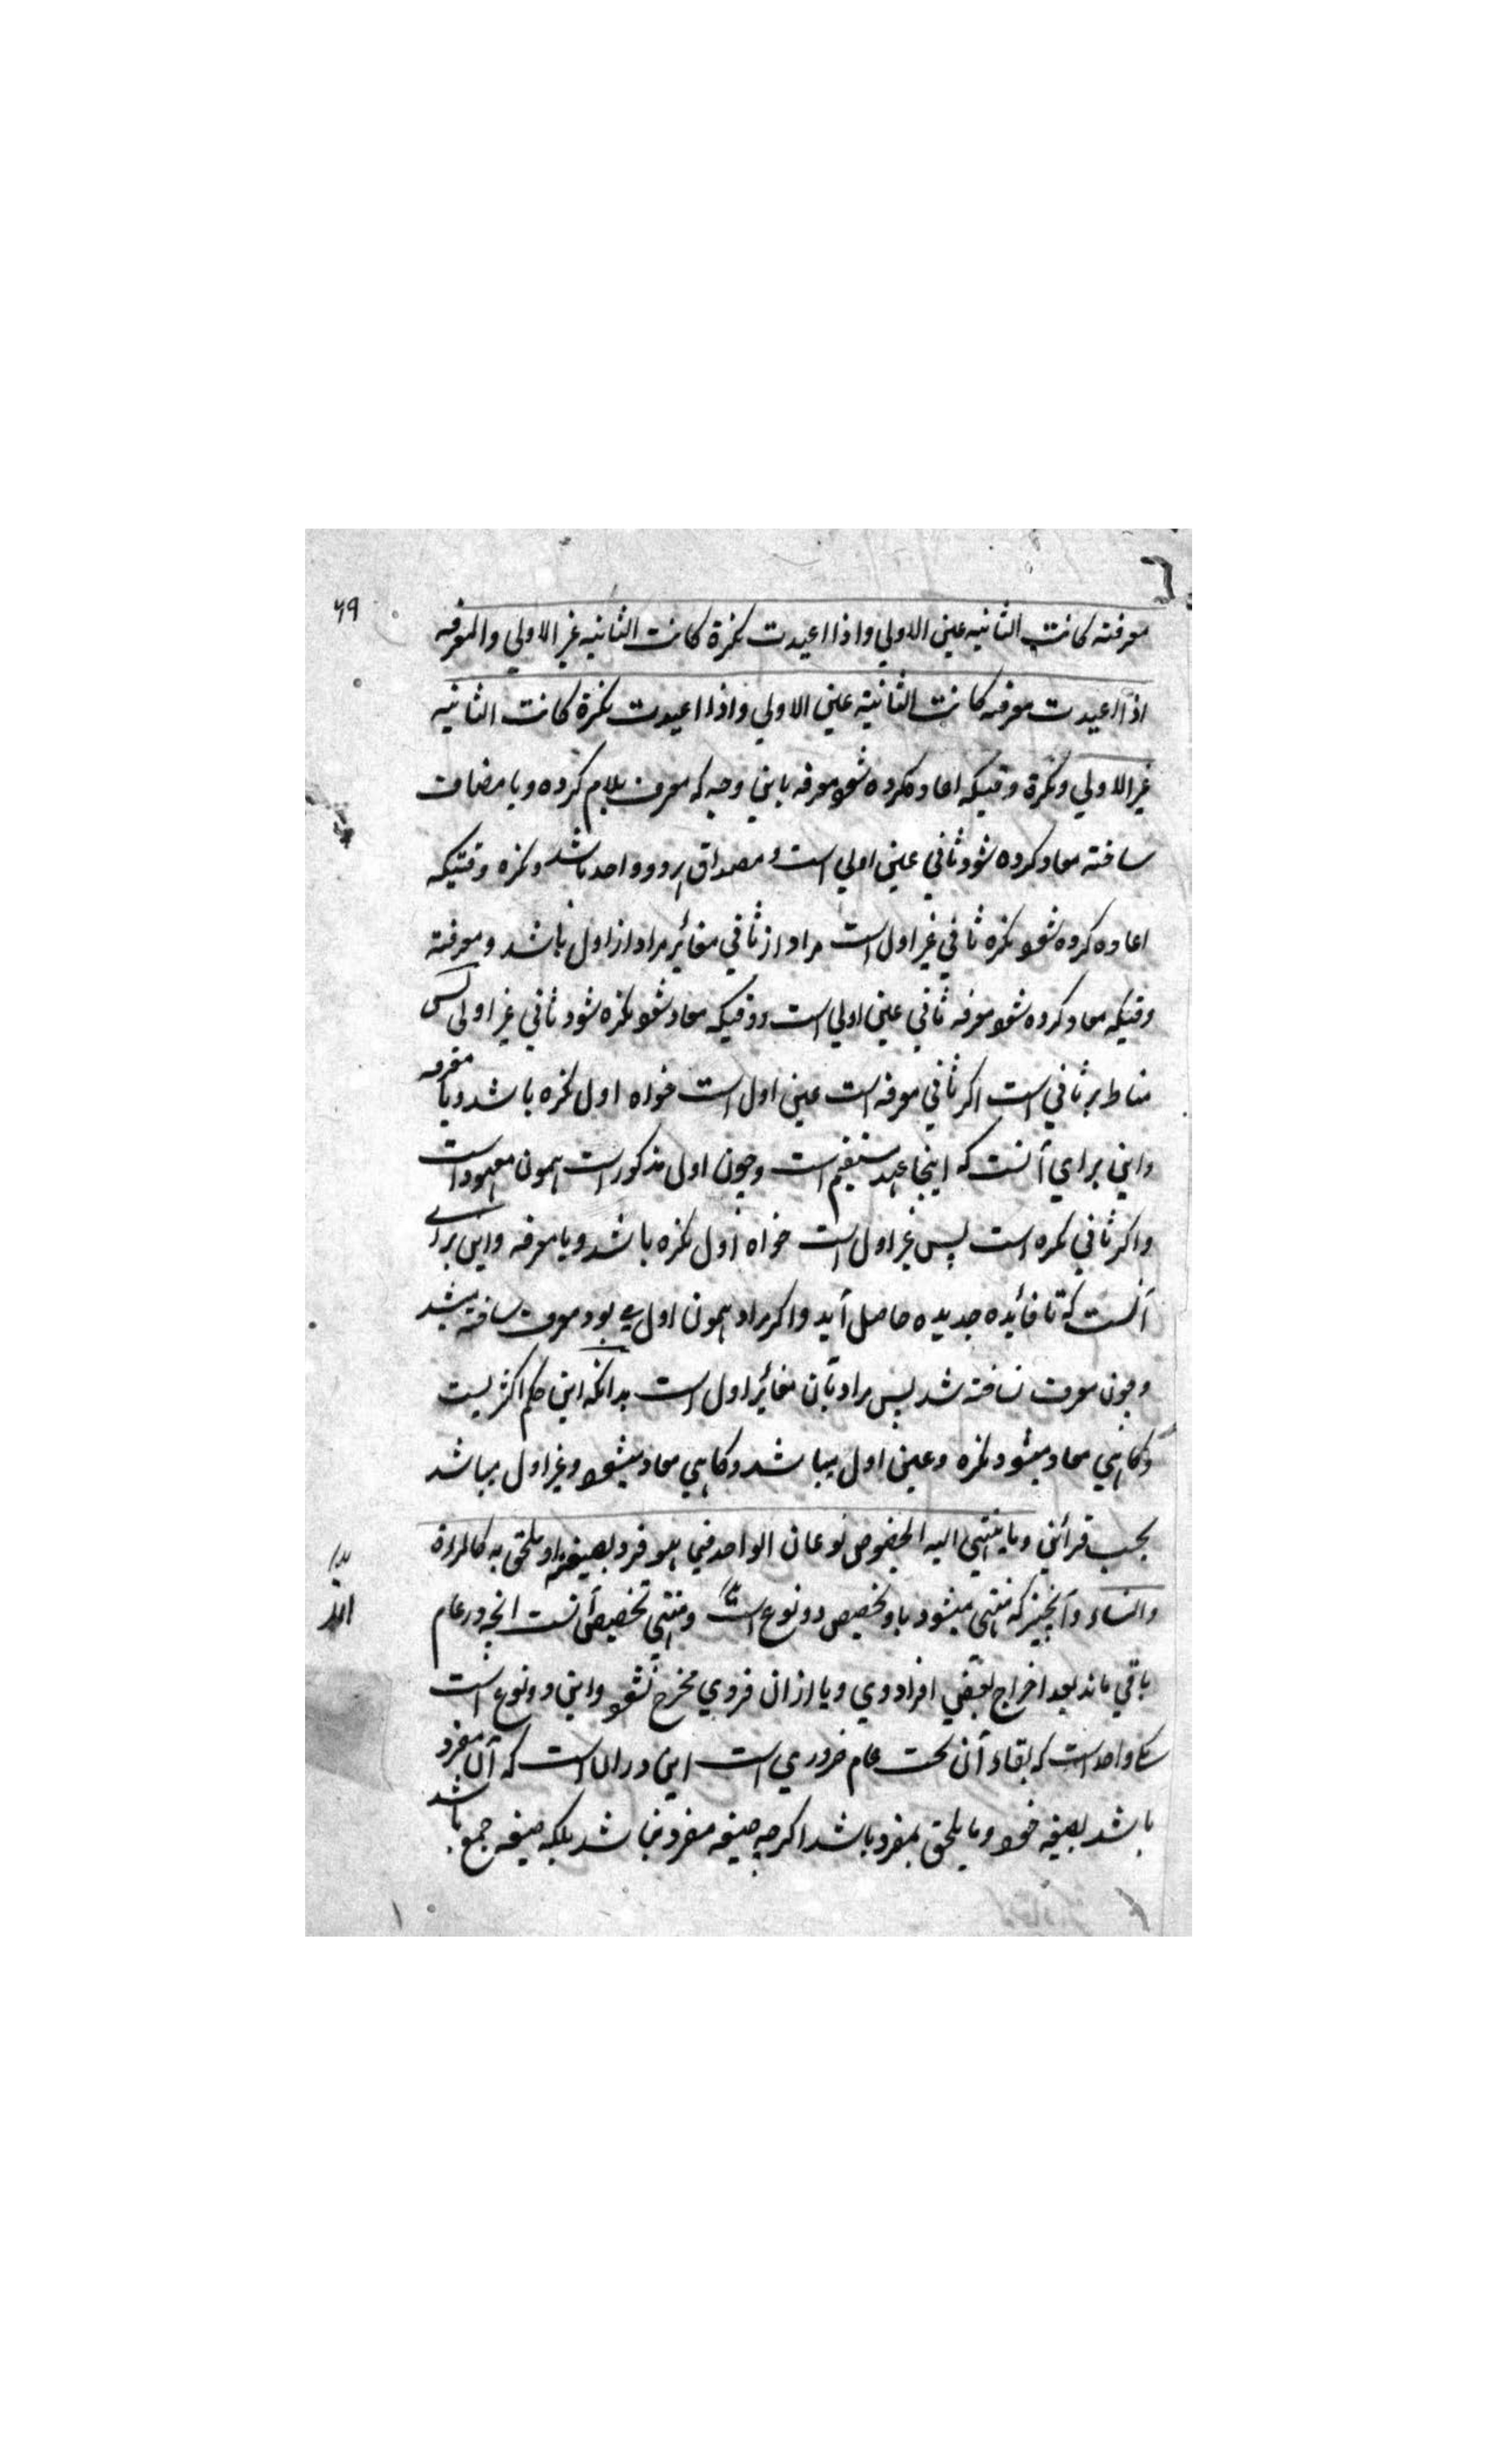 ۶۹
معرفته كانت الثانيه عين الاولي واذا اعيدت نكرة كانت الثانيه غير الاولي والمعرفه
اذا اعيدت معرفه كانت الثانيته عين الاولي واذا اعيدت نكرة كانت الثانيه
غير الاولي ونكرة وقتيكه اعاده كرده شود معرفه باين وجه كه معرف بلام كرده ويا مضاف
ساخته معاد كرده شود ثاني عين اولي است و مصداق هر دو واحد باشد ونكره وقتيكه
اعاده كرده شود نكره ثاني غير اول است مراد از ثاني مغائر مراد از اول باشد ومعرفته
وقتيكه معاد كرده شود معرفه ثاني عين اولي است ووقتيكه معاد شود نكره شود ثاني غير اولي پس
مناط بر ثاني است اكر ثاني معرفه است عين اول است خواه اول نكره باشد ويا معرفه
واين براي آنست كه اينجا عهد مستقيم است وچون اول مذكور است همون معهود است
واكر ثاني نكره است پس غير اول است خواه اول نكره باشد ويا معرفه واين براے
آنست كه تا فائده جديده حاصل آيد واكر مراد همون اول مے بود معرف ساخته ميشد
وچون معرف نساخته شد پس مراد بآن مغائر اول است بدانكه اين حكم اكثريست
وكاهي معاد ميشود نكره وعين اول ميباشد وكاهي معاد ميشود وغير اول ميباشد
بحسب قرائن وما ينتهي اليه الخصوص نوعان الواحد فيما هو فرد بصيغته او ملحق به كالمراة
والنساء وآنچيز كه منتهي ميشود باو تخصيص دو نوع است ومنتهي تخصيص آنست انچه در عام
باقي ماند بعد اخراج بعضي افراد وي ويا ازان فردي مخرج نشود واين دو نوع است
يكے واحد است كه بقاء آن تحت عام ضروري است اين دران است كه آن مفرد
باشد بصيغه خود وما يلحق بمفرد باشد اكرچه صيغه مفرد نباشد بلكه صيغه جمع باشد